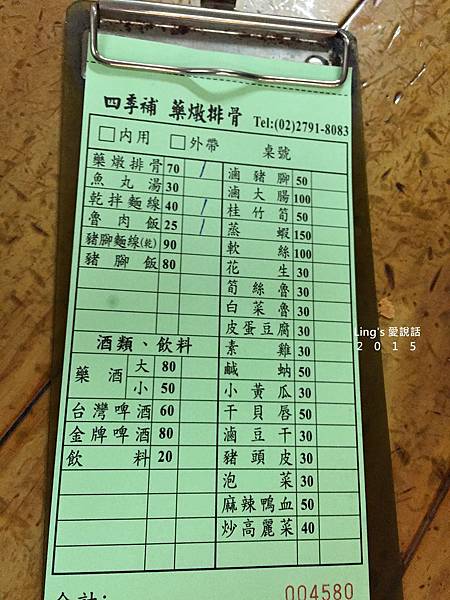 四季補 藥燉排骨 Tel:(02)2791-8083
□內用 □外帶 桌號
藥燉排骨 70 /
魚丸湯 30
乾拌麵線 40 /
魯肉飯 25 /
豬腳麵線(乾) 90
豬腳飯 80
酒類、飲料
藥酒 大 80
小 50
台灣啤酒 60
金牌啤酒 80
飲料 20
滷豬腳 50
滷大腸 100
桂竹筍 50
蒸蝦 150
軟絲 100
花生 30
筍絲魯 30
白菜魯 30
皮蛋豆腐 30
素雞 30
鹹蚋 50
小黃瓜 30
干貝唇 50
滷豆干 30
豬頭皮 30
泡菜 30
麻辣鴨血 50
炒高麗菜 40
合計:
004580
Ling's 愛說話
2015